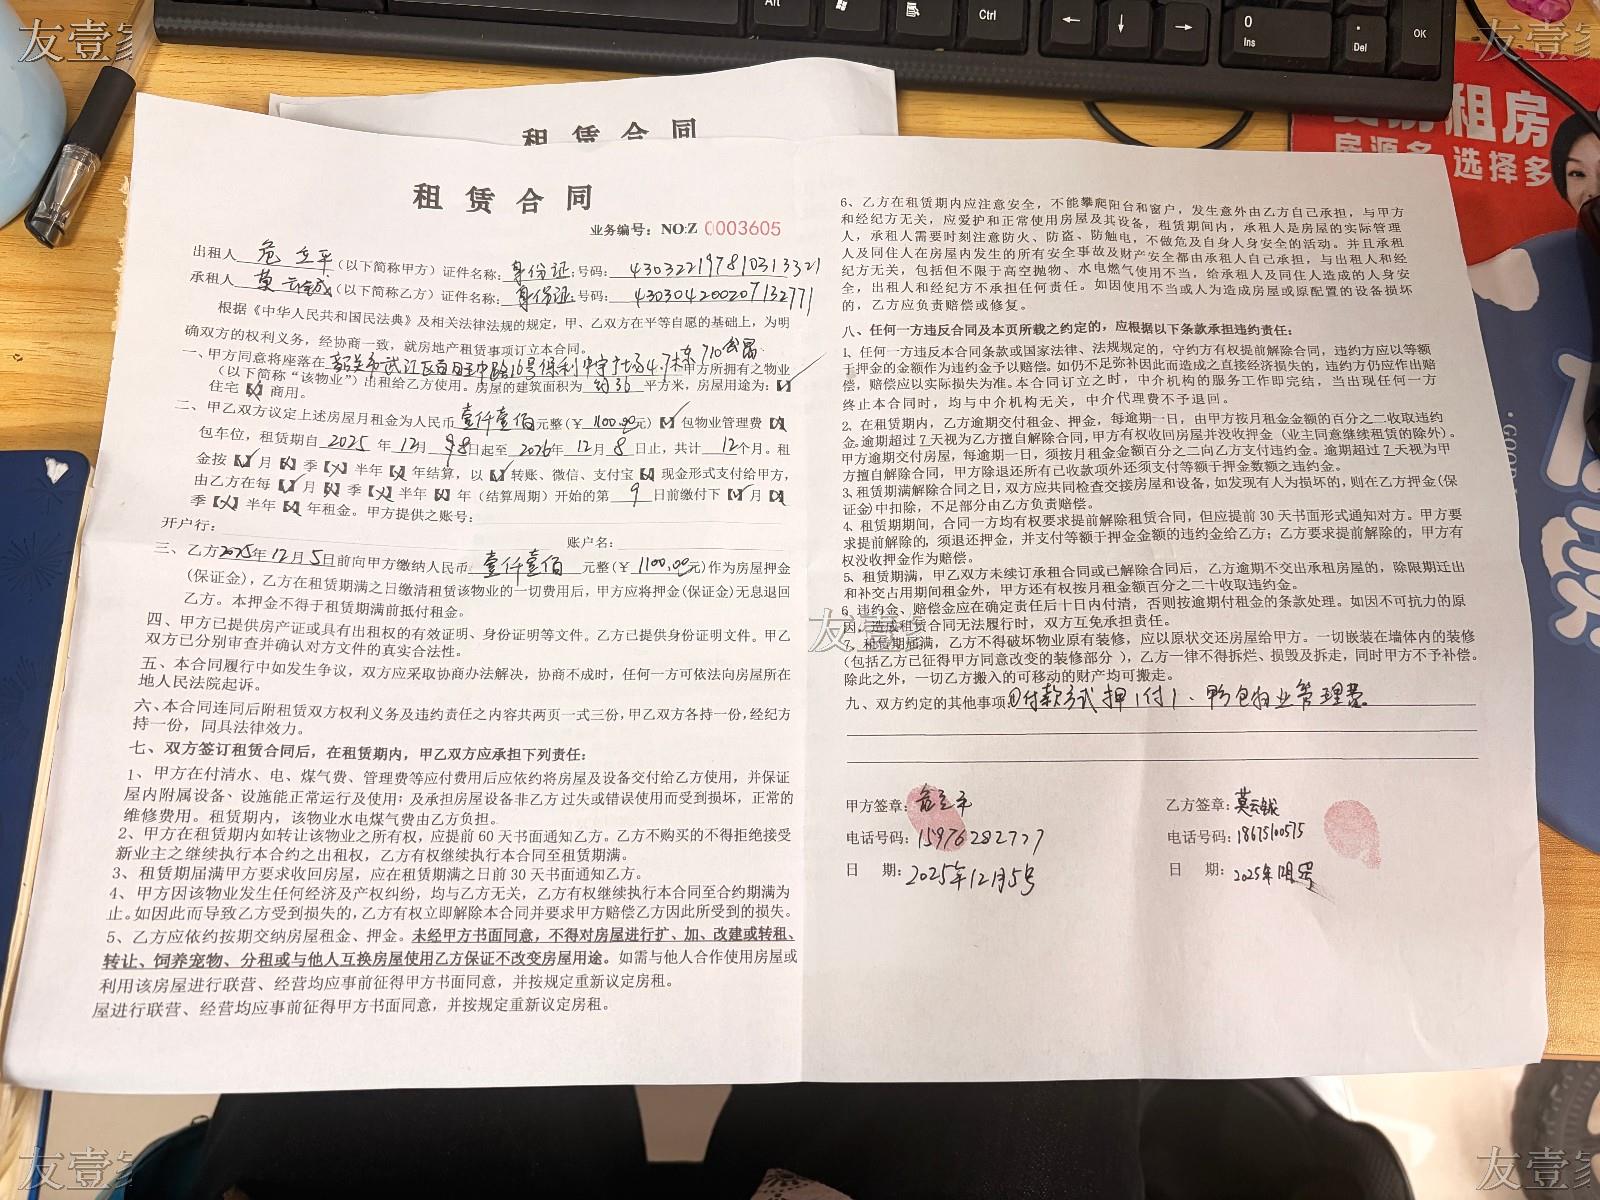 友壹家
友壹家
Alt
Ctrl
0
Ins
.
Del
OK
租房
房源多 选择多
租 赁 合 同
租 赁 合 同
业务编号：NO:Z 0003605
出租人 危立平 (以下简称甲方) 证件名称: 身份证 号码: 430322197810313321
承租人 (以下简称乙方) 证件名称: 身份证 号码: 430304200207132771
根据《中华人民共和国民法典》及相关法律法规的规定，甲、乙双方在平等自愿的基础上，为明
确双方的权利义务，经协商一致，就房地产租赁事项订立本合同。
一、甲方同意将座落在 韶关市武江区百旺中路16号保利中宇广场4.7栋710公寓 甲方所拥有之物业
(以下简称“该物业”) 出租给乙方使用。房屋的建筑面积为 约36 平方米，房屋用途为:【】
住宅【】商用。
二、甲乙双方议定上述房屋月租金为人民币 壹仟壹佰 元整(￥ 1100.00元)【】包物业管理费【】
包车位，租赁期自 2025 年 12月 8日起至 2026年 12月 8 日止，共计 12个月。租
金按【】月【】季【】半年【】年结算，以【】转账、微信、支付宝【】现金形式支付给甲方，
由乙方在每【】月【】季【】半年【】年（结算周期）开始的第 9 日前缴付下【】月【】
季【】半年【】年租金。甲方提供之账号：
开户行： 账户名：
三、乙方2025年12月5日前向甲方缴纳人民币 壹仟壹佰 元整(￥ 1100.00元)作为房屋押金
(保证金)，乙方在租赁期满之日缴清租赁该物业的一切费用后，甲方应将押金(保证金)无息退回
乙方。本押金不得于租赁期满前抵付租金。
四、甲方已提供房产证或具有出租权的有效证明、身份证明等文件。乙方已提供身份证明文件。甲乙
双方已分别审查并确认对方文件的真实合法性。
五、本合同履行中如发生争议，双方应采取协商办法解决，协商不成时，任何一方可依法向房屋所在
地人民法院起诉。
六、本合同连同后附租赁双方权利义务及违约责任之内容共两页一式三份，甲乙双方各持一份，经纪方
持一份，同具法律效力。
七、双方签订租赁合同后，在租赁期内，甲乙双方应承担下列责任：
1、甲方在付清水、电、煤气费、管理费等应付费用后应依约将房屋及设备交付给乙方使用，并保证
屋内附属设备、设施能正常运行及使用；及承担房屋设备非乙方过失或错误使用而受到损坏，正常的
维修费用。租赁期内，该物业水电煤气费由乙方负担。
2、甲方在租赁期内如转让该物业之所有权，应提前60天书面通知乙方。乙方不购买的不得拒绝接受
新业主之继续执行本合约之出租权，乙方有权继续执行本合同至租赁期满。
3、租赁期届满甲方要求收回房屋，应在租赁期满之日前30天书面通知乙方。
4、甲方因该物业发生任何经济及产权纠纷，均与乙方无关，乙方有权继续执行本合同至合约期满为
止。如因此而导致乙方受到损失的，乙方有权立即解除本合同并要求甲方赔偿乙方因此所受到的损失。
5、乙方应依约按期交纳房屋租金、押金。未经甲方书面同意，不得对房屋进行扩、加、改建或转租、
转让、饲养宠物、分租或与他人互换房屋使用乙方保证不改变房屋用途。如需与他人合作使用房屋或
利用该房屋进行联营、经营均应事前征得甲方书面同意，并按规定重新议定房租。
屋进行联营、经营均应事前征得甲方书面同意，并按规定重新议定房租。
6、乙方在租赁期内应注意安全，不能攀爬阳台和窗户，发生意外由乙方自己承担，与甲方
和经纪方无关，应爱护和正常使用房屋及其设备，租赁期间内，承租人是房屋的实际管理
人，承租人需要时刻注意防火、防盗、防触电，不做危及自身人身安全的活动。并且承租
人及同住人在房屋内发生的所有安全事故及财产安全都由承租人自己承担，与出租人和经
纪方无关，包括但不限于高空抛物、水电燃气使用不当，给承租人及同住人造成的人身安
全，出租人和经纪方不承担任何责任。如因使用不当或人为造成房屋或原配置的设备损坏
的，乙方应负责赔偿或修复。
八、任何一方违反合同及本页所载之约定的，应根据以下条款承担违约责任：
1、任何一方违反本合同条款或国家法律、法规规定的，守约方有权提前解除合同，违约方应以等额
于押金的金额作为违约金予以赔偿。如仍不足弥补因此而造成之直接经济损失的，违约方仍应作出赔
偿，赔偿应以实际损失为准。本合同订立之时，中介机构的服务工作即完结，当出现任何一方
终止本合同时，均与中介机构无关，中介代理费不予退回。
2、在租赁期内，乙方逾期交付租金、押金，每逾期一日，由甲方按月租金金额的百分之二收取违约
金。逾期超过7天视为乙方擅自解除合同，甲方有权收回房屋并没收押金（业主同意继续租赁的除外）。
甲方逾期交付房屋，每逾期一日，须按月租金金额百分之二向乙方支付违约金。逾期超过7天视为甲
方擅自解除合同，甲方除退还所有已收款项外还须支付等额于押金数额之违约金。
3、租赁期满解除合同之日，双方应共同检查交接房屋和设备，如发现有人为损坏的，则在乙方押金(保
证金)中扣除，不足部分由乙方负责赔偿。
4、租赁期期间，合同一方均有权要求提前解除租赁合同，但应提前30天书面形式通知对方。甲方要
求提前解除的，须退还押金，并支付等额于押金金额的违约金给乙方；乙方要求提前解除的，甲方有
权没收押金作为赔偿。
5、租赁期满，甲乙双方未续订承租合同或已解除合同后，乙方逾期不交出承租房屋的，除限期迁出
和补交占用期间租金外，甲方还有权按月租金额百分之二十收取违约金。
6、违约金、赔偿金应在确定责任后十日内付清，否则按逾期付租金的条款处理。如因不可抗力的原
因，造成租赁合同无法履行时，双方互免承担责任。
友壹家
7、租赁期届满，乙方不得破坏物业原有装修，应以原状交还房屋给甲方。一切嵌装在墙体内的装修
(包括乙方已征得甲方同意改变的装修部分 )，乙方一律不得拆烂、损毁及拆走，同时甲方不予补偿。
除此之外，一切乙方搬入的可移动的财产均可搬走。
九、双方约定的其他事项：①付款方式押1付1、甲方包物业管理费
甲方签章： 危立平
电话号码：15976282777
日 期：2025年12月5号
乙方签章：
电话号码：18675100575
日 期：2025年12月5号
友壹家
友壹家